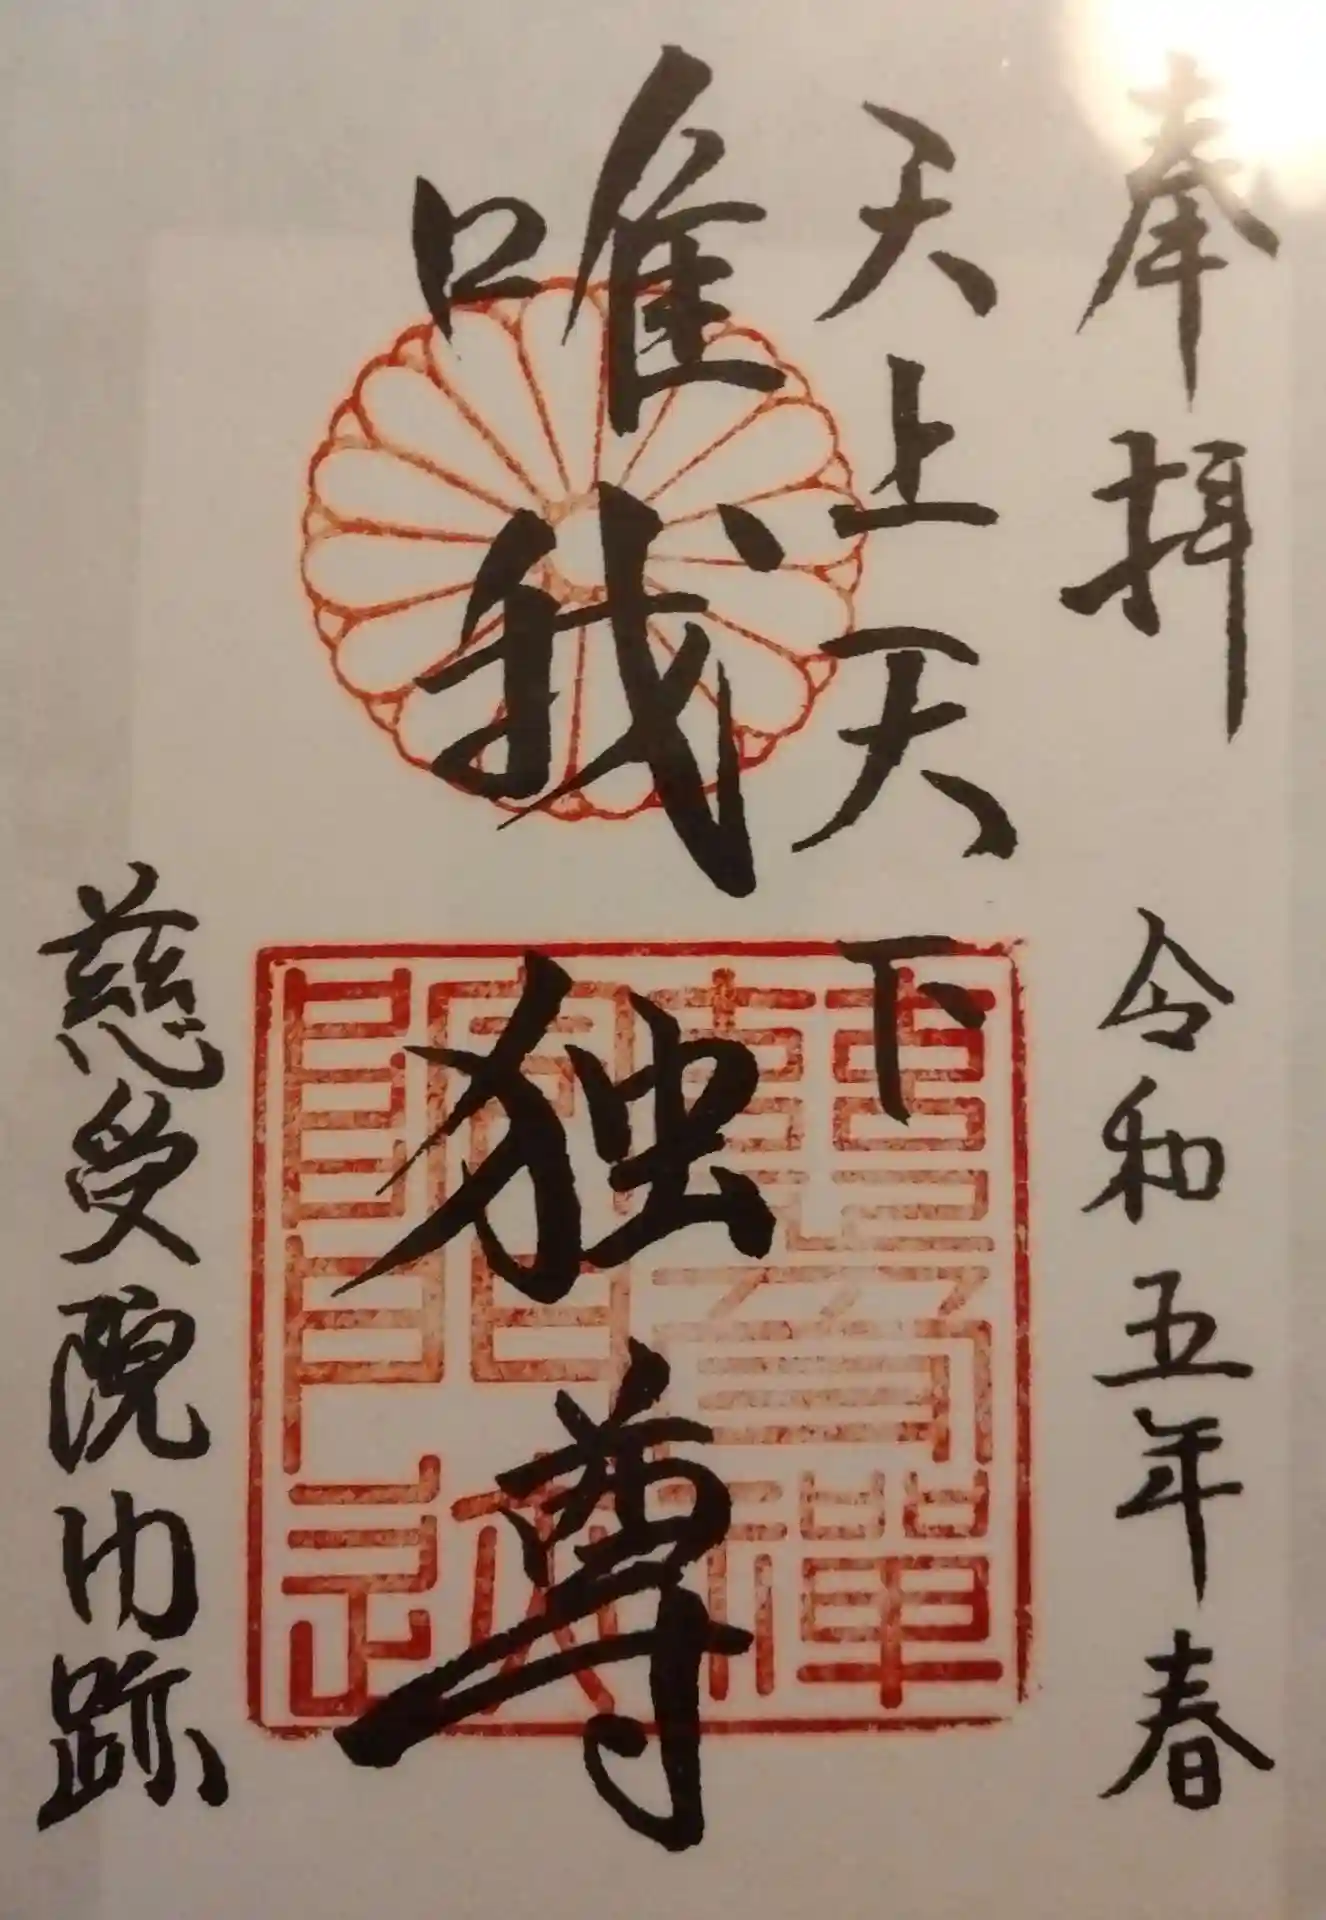 奉拝 令和五年春
天上天下
唯我独尊
慈受院門跡